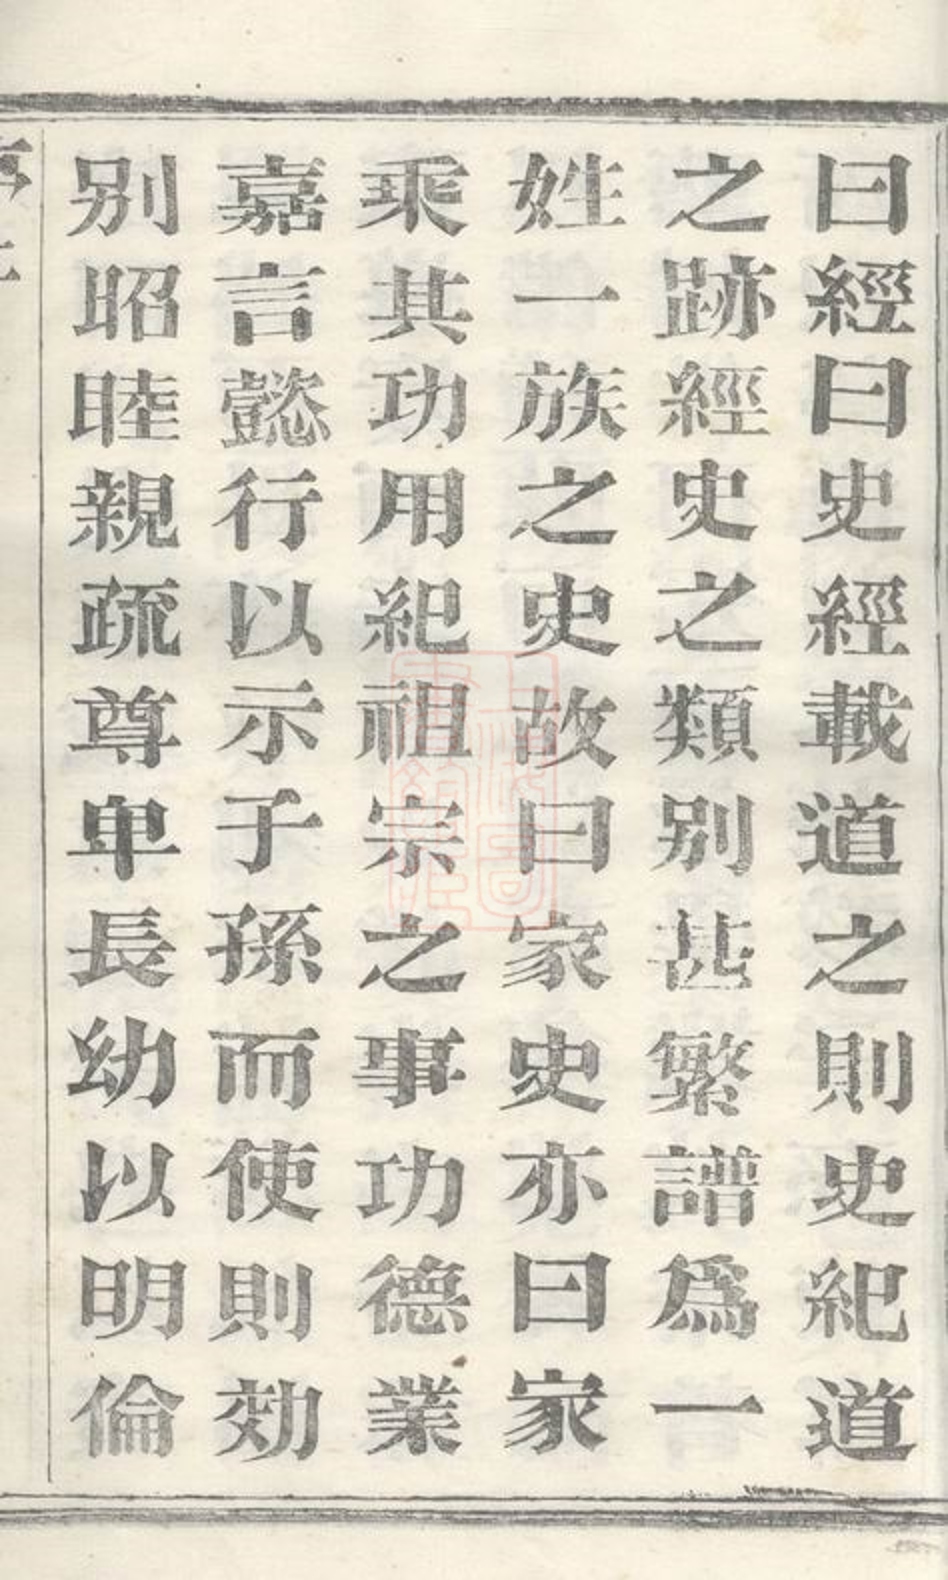 曰經曰史經載道之則史紀道
之跡經史之類別甚繁譜爲一
姓一族之史故曰家史亦曰家
乘其功用紀祖宗之事功德業
嘉言懿行以示子孫而使則効
别昭睦親疏尊卑長幼以明倫